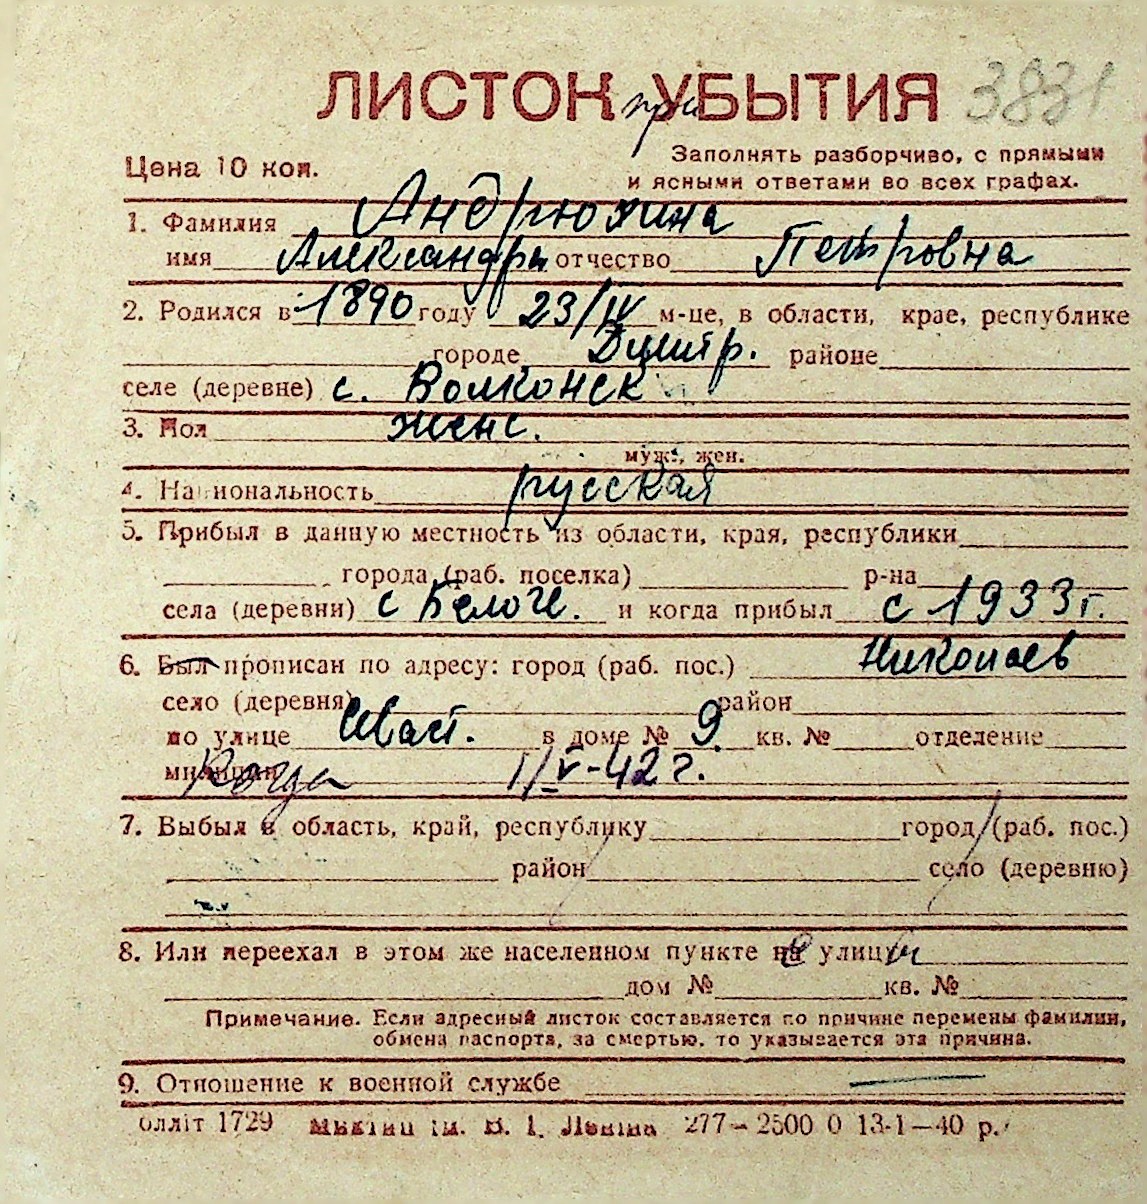 ЛИСТОК при УБЫТИЯ 3831
Цена 10 коп.
Заполнять разборчиво, с прямыми
и ясными ответами во всех графах.
1. Фамилия Андрюхина
имя Александра отчество Петровна
2. Родился в 1890 году 23/IV м-це, в области, крае, республике
городе Димитр. районе
селе (деревне) с. Волконск
3. Пол женс.
муж., жен.
4. Национальность русская
5. Прибыл в данную местность из области, края, республики
города (раб. поселка) р-на
села (деревни) с и когда прибыл с 1933 г.
6. Был прописан по адресу: город (раб. пос.) Николаев
село (деревня) район
по улице в доме № 9 кв. № отделение
милиции Когда 1/V-42 г.
7. Выбыл в область, край, республику город (раб. пос.)
район село (деревню)
8. Или переехал в этом же населенном пункте на улицу
дом № кв. №
Примечание. Если адресный листок составляется по причине перемены фамилии,
обмена паспорта, за смертью, то указывается эта причина.
9. Отношение к военной службе
олліт 1729 ім. В. І. Леніна 277—2500 0 13-1—40 р.